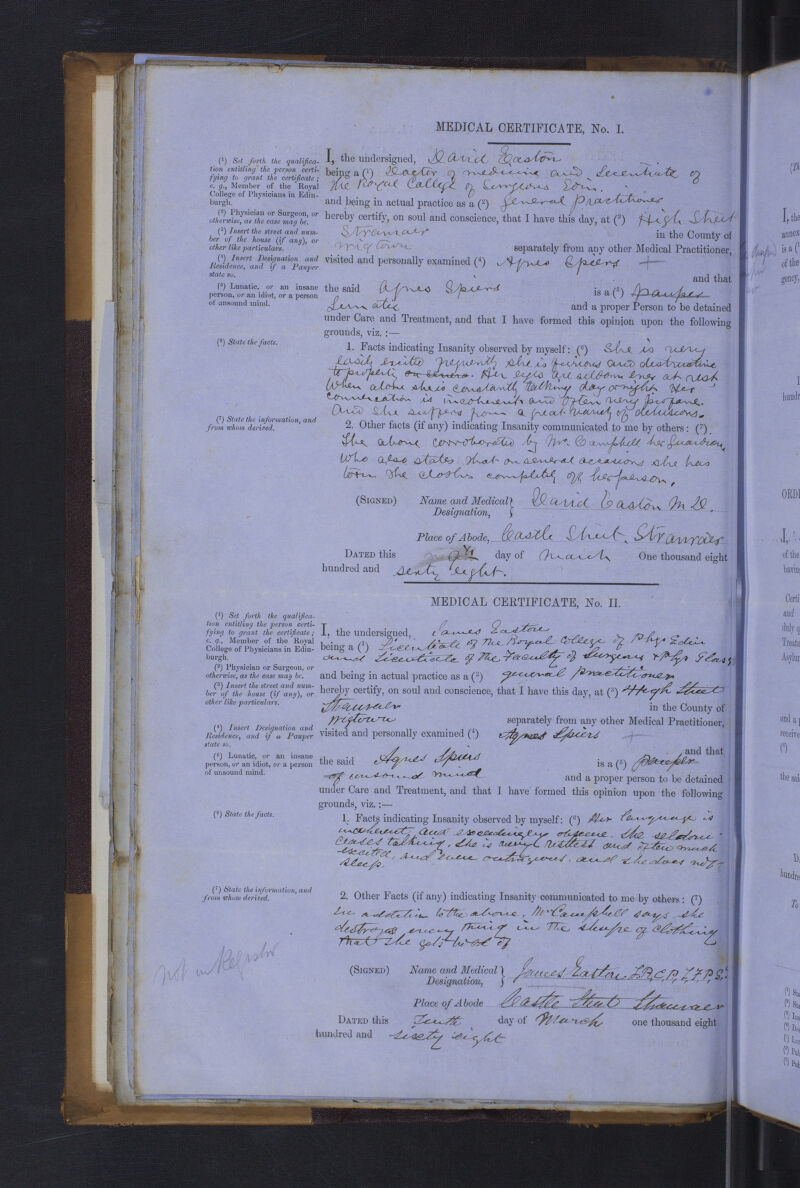 MEDICAL CERTIFICATE, No. I.
(¹) Set forth the qualifica-
tion entitling the person certi-
fying to grant the certificate;
e. g., Member of the Royal
College of Physicians in Edin-
burgh.
(²) Physician or Surgeon, or
otherwise, as the case may be.
(³) Insert the street and num-
ber of the house (if any), or
other like particulars.
(⁴) Insert Designation and
Residence, and if a Pauper
state so.
(⁵) Lunatic, or an insane
person, or an idiot, or a person
of unsound mind.
(⁶) State the facts.
(⁷) State the information, and
from whom derived.
I, the undersigned, David Easton
being a (¹) Doctor of medicine and Licentiate of
the Royal College of Surgeons Edin.
and being in actual practice as a (²) general Practitioner
hereby certify, on soul and conscience, that I have this day, at (³) High Street
Stranraer in the County of
Wigtown separately from any other Medical Practitioner,
visited and personally examined (⁴) Agnes Spiers +
and that
the said Agnes Spiers is a (⁵) Pauper
Lunatic and a proper Person to be detained
under Care and Treatment, and that I have formed this opinion upon the following
grounds, viz. :—
1. Facts indicating Insanity observed by myself: (⁶) She is very
easily excited frequently she is furious and destructive
to property Her eyes are seldom ever at rest
When alone she is constantly talking day or night Her
conversation is incoherent and often very profane.
And She suffers from a great variety of delusions.
2. Other facts (if any) indicating Insanity communicated to me by others: (⁷).
The above corroborated by Mrs. Campbell her Guardian,
who also states that on several occasions she has
torn the clothes completely off her person,
(SIGNED) Name and Medical Designation, David Easton M.D.
Place of Abode, Castle Street, Stranraer
DATED this day of March One thousand eight
hundred and sixty eight.
MEDICAL CERTIFICATE, No. II.
(¹) Set forth the qualifica-
tion entitling the person certi-
fying to grant the certificate;
e. g., Member of the Royal
College of Physicians in Edin-
burgh.
(²) Physician or Surgeon, or
otherwise, as the case may be.
(³) Insert the street and num-
ber of the house (if any), or
other like particulars.
(⁴) Insert Designation and
Residence, and if a Pauper
state so.
(⁵) Lunatic, or an insane
person, or an idiot, or a person
of unsound mind.
(⁶) State the facts.
(⁷) State the information, and
from whom derived.
I, the undersigned, James Easton
being a (¹) Licentiate of the Royal College of Phys Edin
and Licentiate of the Faculty of Surgeons & Phys Glasg
and being in actual practice as a (²) general Practitioner
hereby certify, on soul and conscience, that I have this day, at (³) High Street
Stranraer in the County of
Wigtown separately from any other Medical Practitioner,
visited and personally examined (⁴) Agnes Spiers +
and that
the said Agnes Spiers is a (⁵) Pauper
of unsound mind and a proper person to be detained
under Care and Treatment, and that I have formed this opinion upon the following
grounds, viz. :—
1. Facts indicating Insanity observed by myself: (⁶) Her language is
incoherent, and exceedingly obscene. She seldom
ceases talking, She is very restless and often much
excited, and even outrageous. and she does not
sleep.
2. Other Facts (if any) indicating Insanity communicated to me by others: (⁷)
In addition to the above, Mrs Campbell says she
destroys every thing in the shape of clothing
that she gets hold of
Not in Register
(SIGNED) Name and Medical Designation, James Easton L.R.C.P., L.F.P.S.
Place of Abode Castle Street Stranraer
DATED this Tenth day of March one thousand eight
hundred and sixty eight